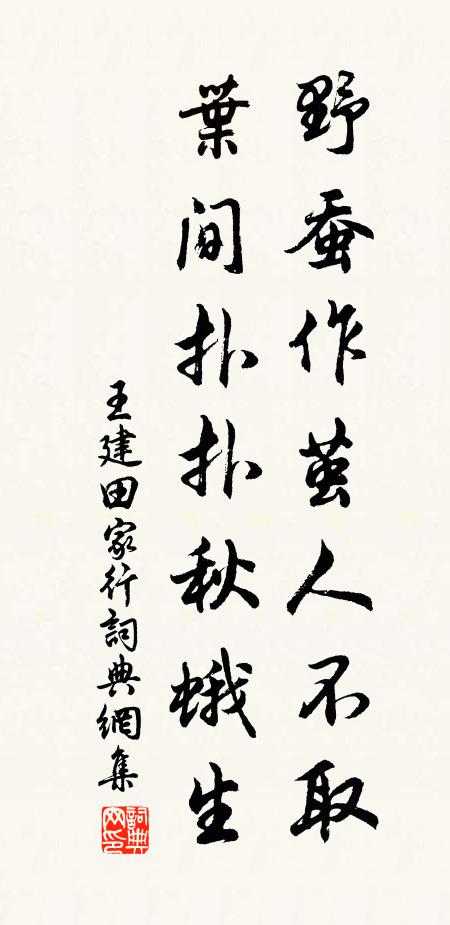 野蚕作茧人不取
葉间扑扑秋蛾生
王建田家行詞典網集
詞典网印